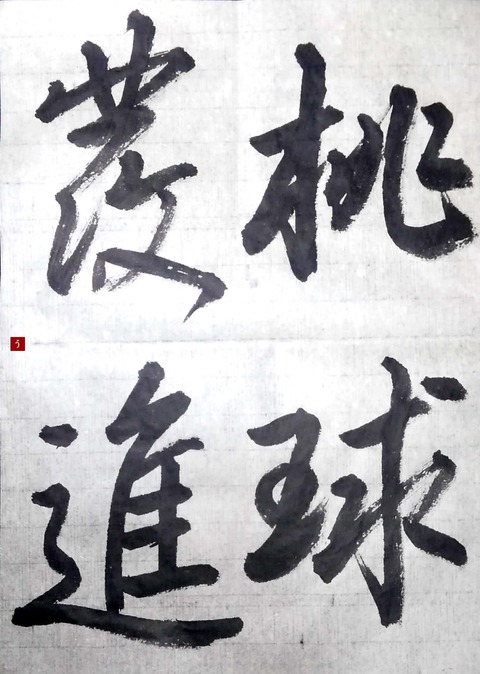 桃球
發進
う